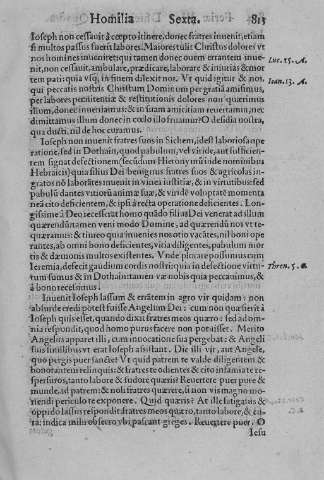 Homilia Sexta. 813
Ioseph non cessauit à cœpto itinere, donec fratres inuenit, etiam
si multos passus fuerit labores. Maiores tulit Christus dolores vt
nos homines inueniret: qui tamen donec ouem errantem inue-
nit, non cessauit, ambulare, prædicare, laborare & iniurias & mor
tem pati: quia vsq; in finem dilexit nos. Vt quid igitur & non
qui peccatis nostris Christum Dominum per gratiã amisimus,
per labores pœnitentiæ & restitutionis dolores non quærimus
illum, donec inueniamus: & in suam amicitiam reuertamur, nec
dimittamus illum donec in cœlo illo fruamur? O desidia nostra,
qua ducti, nil de hoc curamus.
Luc. 15. A.
Ioan. 13. A.
Ioseph non inuenit fratres suos in Sichem, idest laboriosa ope
ratione, sed in Dothain, quod pabulum, vel viride, aut sufficien-
tem signat defectionem (secundum Hieronymũ in de nominibus
Hebraicis) quia filius Dei benignus fratres suos & agricolas in-
gratos nõ laborãtes inuenit in vinea iustitiæ, & in virtutibus sed
pabulũ dantes vitiorũ animæ suæ, & viridè voluptatẽ momenta
neã cito deficientem, & ipsi à recta operatione deficientes. Lon-
gissimè à Deo recesserat homo quãdo filius Dei venerat ad illum
quærendũ: tamen veni modo Domine, ad quærendũ nos vt te-
quæramus: & iterco quia inuenies nos otio vacãtes, nil boni ope
rantes, ab omni bono deficientes, vitia diligentes, pabulum mor
tis & dæmonis multos existentes. Vnde plorare possumus cum
Ieremia, defecit gaudium cordis nostri: quia in defectione virtu-
tum sumus & in Dothain: tamen væ nobis quia peccauimus, &
à bono recessimus.
Thren. 5. c.
Inuenit Ioseph lassum & errãtem in agro vir quidam: non
absurdè credi potest fuisse Angelum Dei: cum non quæsierit à
Ioseph quis esset, quando dixit fratres meos quæro: sed ad om-
nia respondit, quod homo purus facere non potuisset. Meritò
Angelus apparet illi, cum inuocatione sua pergebat: & Angeli
suis similibus vt erat Ioseph assistant. Dic illi vir, aut Angele,
quo pergis puer sancte? Vt quid patrem te valde diligentem &
honorantem relinquis: & fratres te odientes & cito infamia te re-
spersuros, tanto labore & sudore quæris? Reuertere puer pure &
munde, ad patrem: & noli fratres quærere, si non vis magno mo-
riendi periculo te exponere. Quid quæris? At ille fatigatus &
oppidò lassus respondit: fratres meos quæro, tanto labore, & cu-
ra: indica mihi obsecro vbi pascant greges. Reuertere puer. O
Iesu